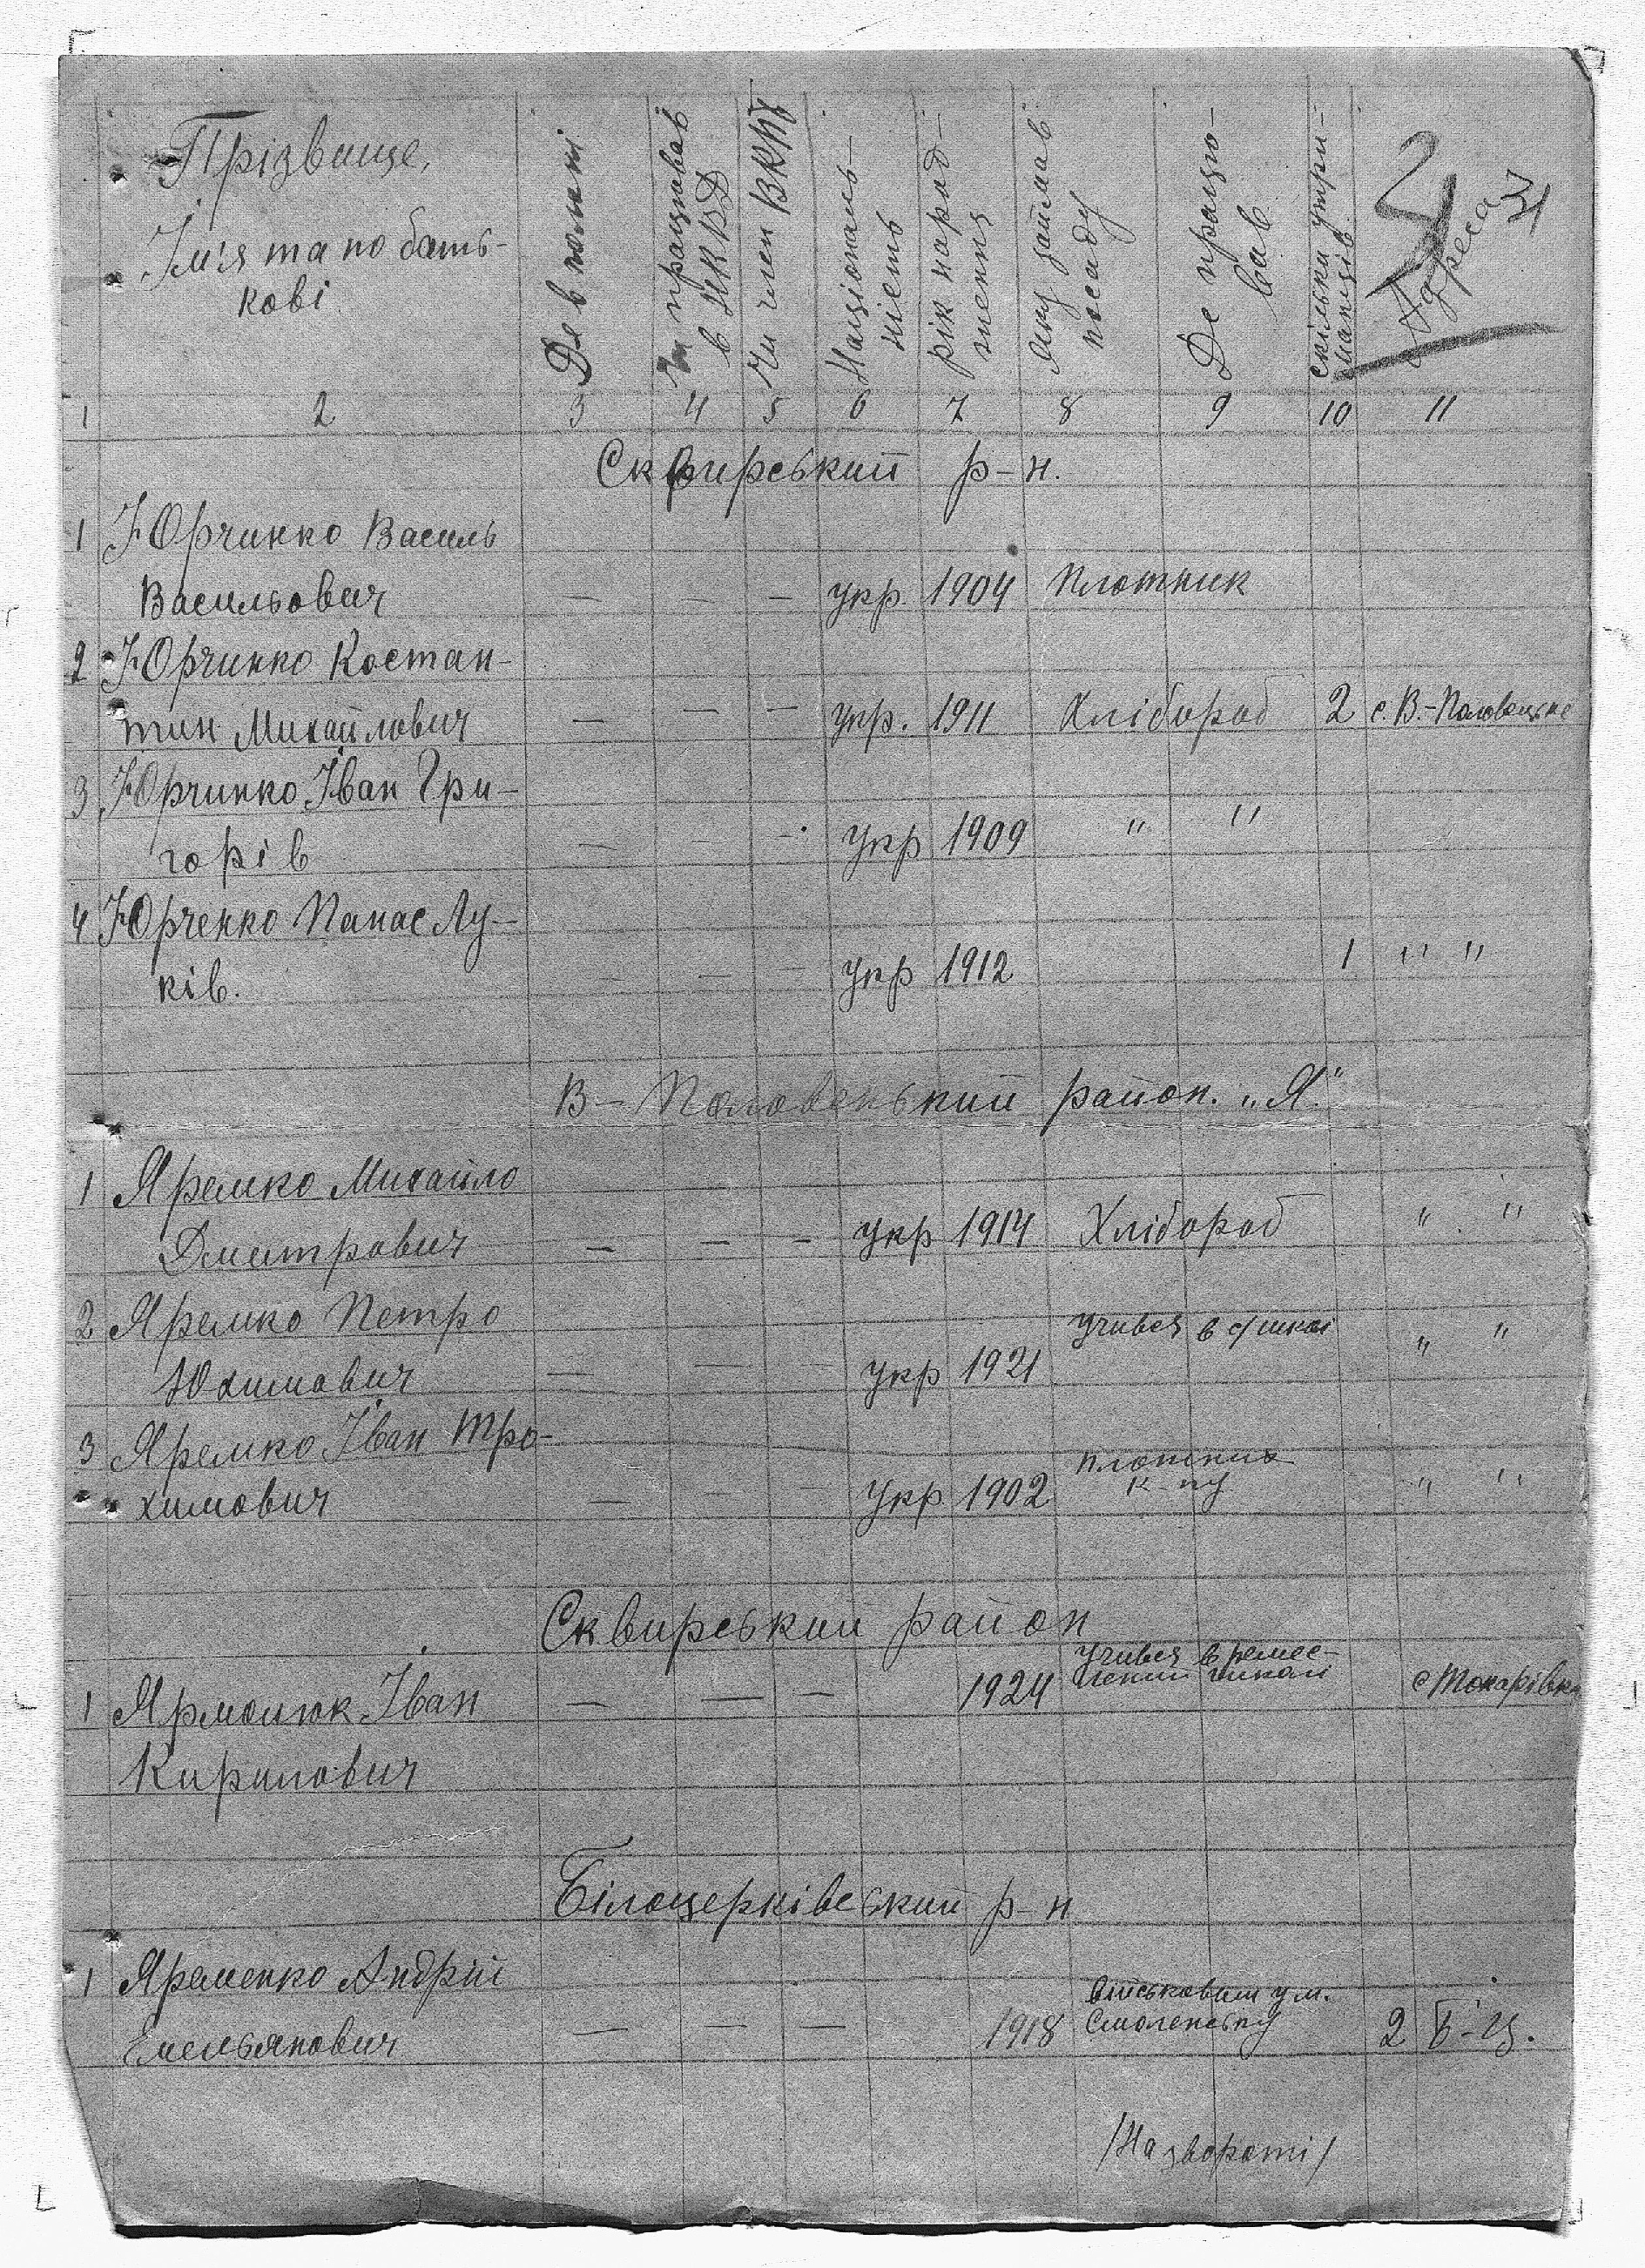 Прізвище,
Ім'я та по бать-
кові
Де в полоні
Чи працював
в НКВД
Чи член ВКПб
Національ-
ність
рік народ-
ження
Яку займав
посаду
Де працю-
вав
скільки утри-
манців
Адреса
31
1 2 3 4 5 6 7 8 9 10 11
Сквирський р-н.
1 Юрчинко Василь
Васильович — — — укр. 1904 Плотник
2 Юрчинко Костан-
тин Михайлович — — — укр. 1911 Хлібороб 2 с. В.-Половецьке
3 Юрчинко Іван Гри-
горів — — — укр 1909 " "
4 Юрченко Панас Лу-
ків. — — — укр 1912 1 " "
В-Половецький район. „Я."
1 Яремко Михайло
Дмитрович — — — укр 1914 Хлібороб " "
2 Яремко Петро учився в с/школі " "
Юхимович — — — укр 1921
3 Яремко Іван Тро-
химович — — — укр 1902 плотник " "
Сквирський район
1 Ярмолюк Іван — — — 1924 учився в ремес-
леній школі с Токарівка
Кирилович
Білоцерківський р-н
1 Яременко Андрій
Емельянович — — — 1918 військовий у м.
Смоленську 2 Б-Ц.
/На звороті/